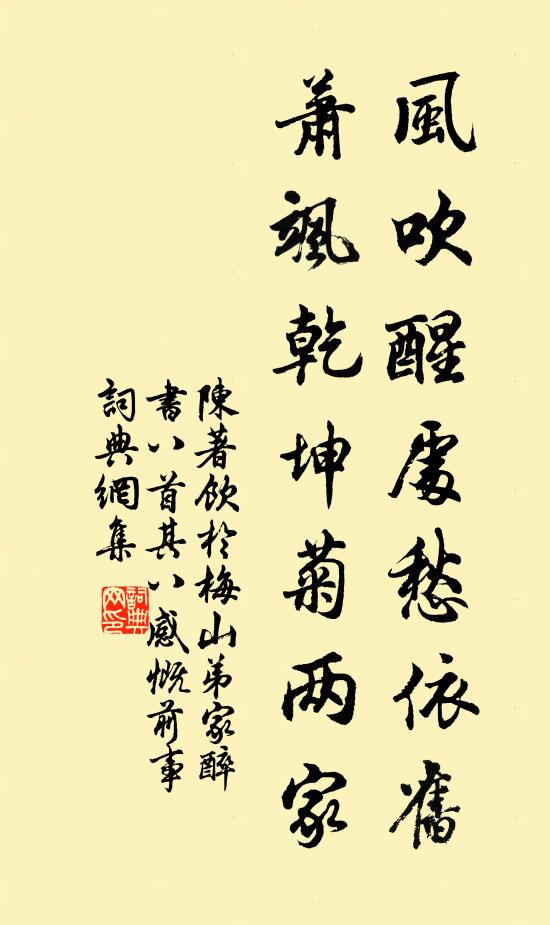 風吹醒處愁依舊
蕭颯乾坤菊两家
陳著飲於梅山弟家醉
書八首其八感慨前事
詞典網集
詞典
网印